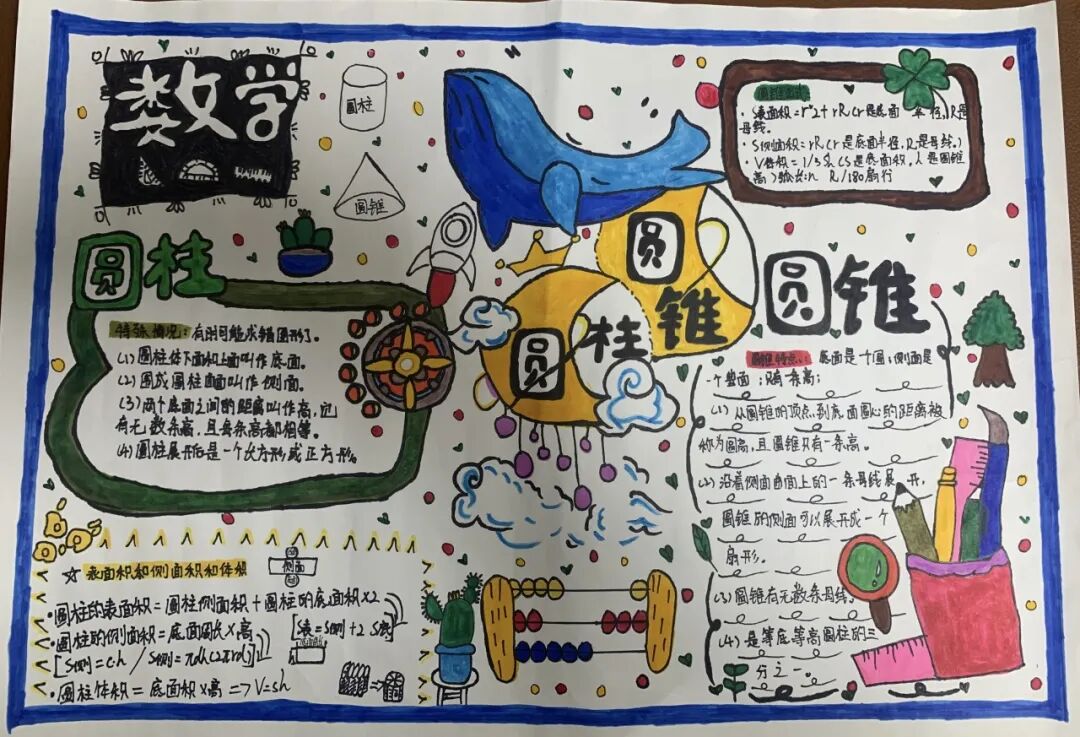 数学
圆柱
圆锥
圆柱
特殊情况：有时可能成错图形了。
(1)圆柱体下面和上面叫作底面。
(2)围成圆柱曲面叫作侧面。
(3)两个底面之间的距离叫作高，它
有无数条高，且每条高都相等。
(4)圆柱展开后是一个长方形或正方形。
☆表面积和侧面积和体积
侧面
·圆柱的表面积＝圆柱侧面积＋圆柱的底面积×2
·圆柱的侧面积＝底面周长×高
[S表＝S侧＋2S底]
[S侧＝ch / S侧＝πdh(2πrd)]
·圆柱体积＝底面积×高＝>V=sh
圆锥
圆柱
·S表面积＝r^2+rR(r是底面半径,R是
母线。
·S侧面积＝rR(r是底面半径,R是母线。)
·V体积＝1/3
(S是底面积,
是圆锥
高)
R/180
圆锥
圆锥特点：底面是一个圆；侧面是
一个曲面；只有一条高；
(1)从圆锥的顶点到底面圆心的距离被
称为圆高,且圆锥只有一条高。
(2)沿着侧面曲面上的一条母线展开，
圆锥的侧面可以展开成一个
扇形。
(3)圆锥有无数条母线。
(4)是等底等高圆柱的三
分之一。